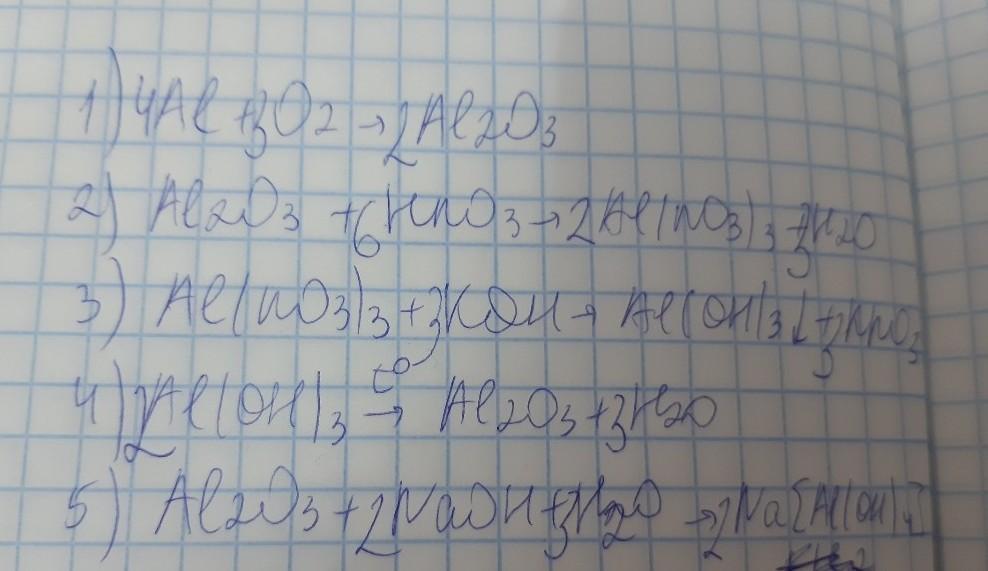 1) 4Al + 3O2 → 2Al2O3
2) Al2O3 + 6HnO3 → 2Al(nO3)3 + 3H2O
3) Al(nO3)3 + 3KOH → Al(OH)3↓ + 3KnO3
4) 2Al(OH)3 t° → Al2O3 + 3H2O
5) Al2O3 + 2NaOH + 3H2O → 2Na[Al(OH)4]